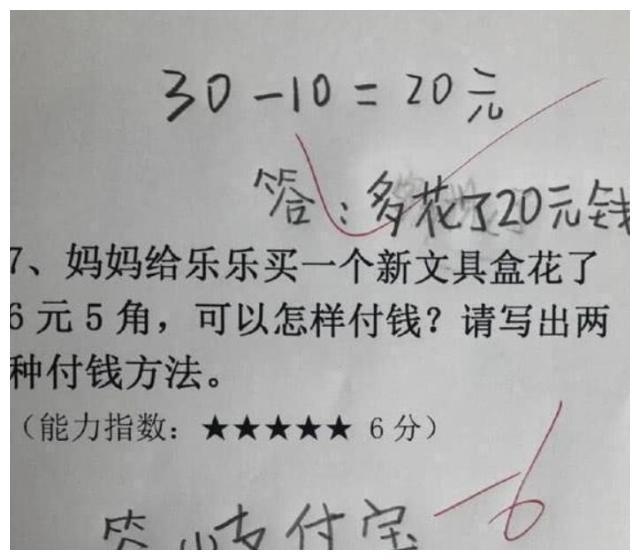 30-10=20元
答:多花了20元钱
7、妈妈给乐乐买一个新文具盒花了
6元5角,可以怎样付钱?请写出两
种付钱方法。
(能力指数:★★★★★ 6分)
答 支付宝
-6